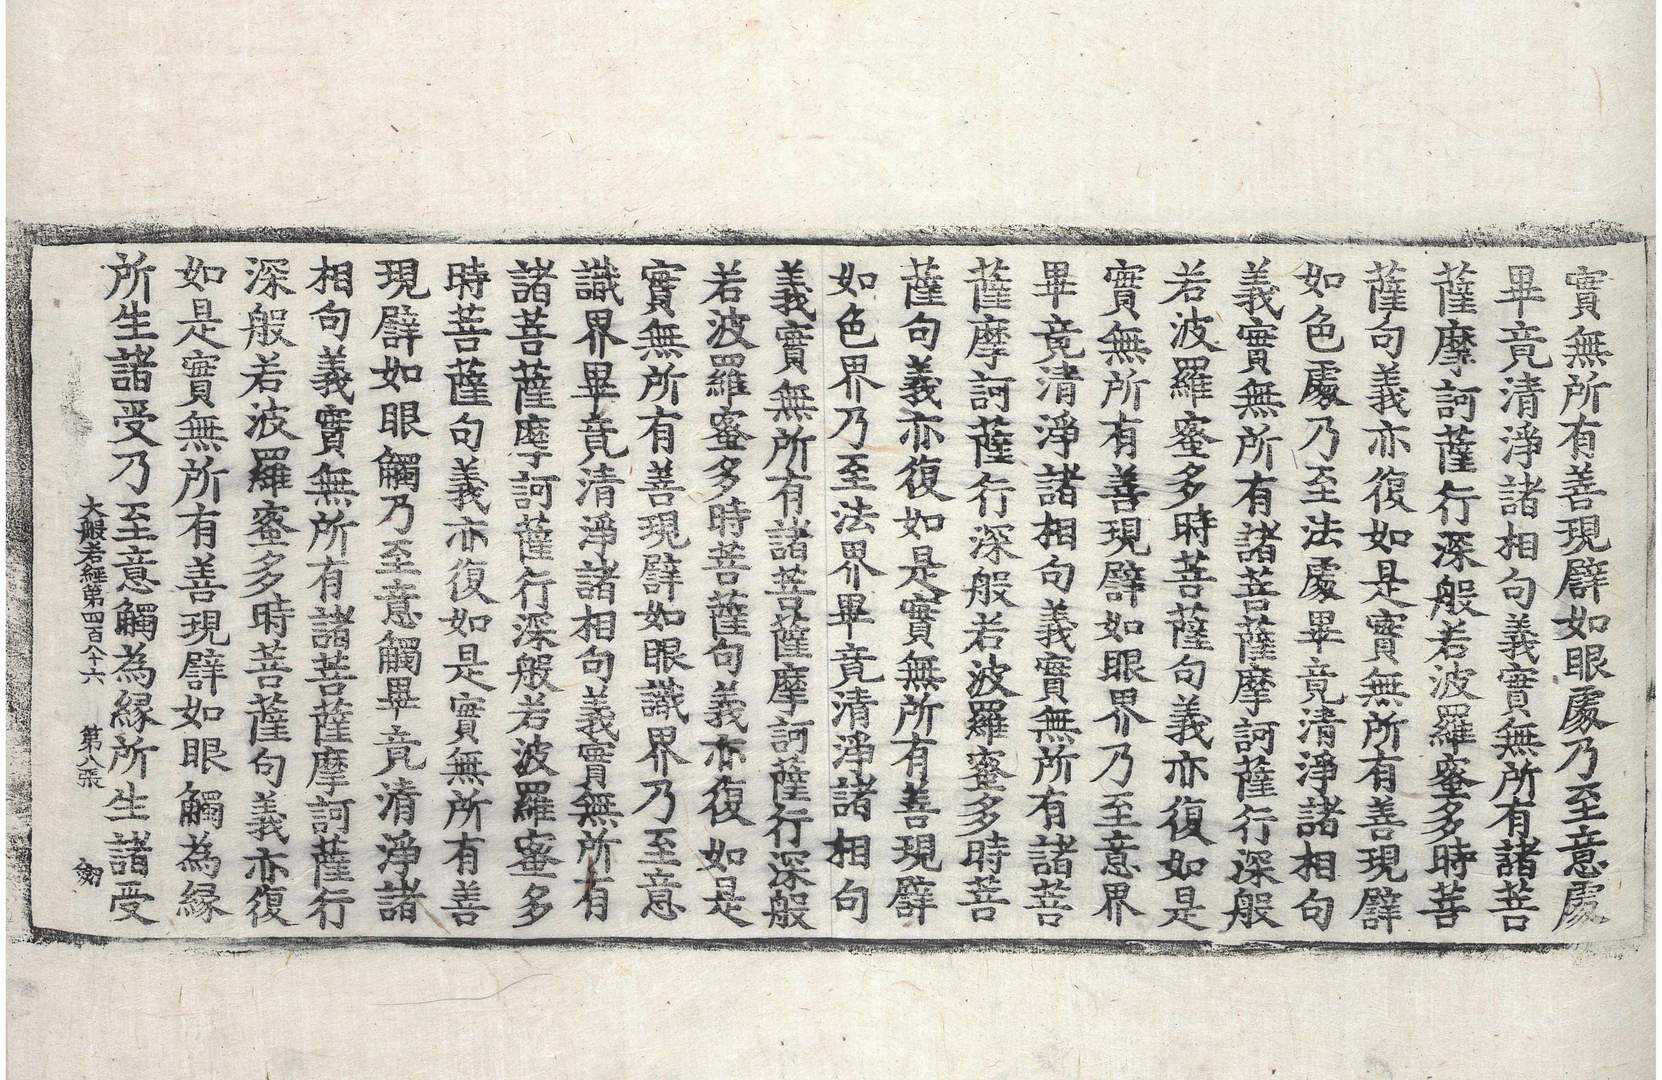 實無所有善現譬如眼處乃至意處
畢竟清淨諸相句義實無所有諸菩
薩摩訶薩行深般若波羅蜜多時菩
薩句義亦復如是實無所有善現譬
如色處乃至法處畢竟清淨諸相句
義實無所有諸菩薩摩訶薩行深般
若波羅蜜多時菩薩句義亦復如是
實無所有善現譬如眼界乃至意界
畢竟清淨諸相句義實無所有諸菩
薩摩訶薩行深般若波羅蜜多時菩
薩句義亦復如是實無所有善現譬
如色界乃至法界畢竟清淨諸相句
義實無所有諸菩薩摩訶薩行深般
若波羅蜜多時菩薩句義亦復如是
實無所有善現譬如眼識界乃至意
識界畢竟清淨諸相句義實無所有
諸菩薩摩訶薩行深般若波羅蜜多
時菩薩句義亦復如是實無所有善
現譬如眼觸乃至意觸畢竟清淨諸
相句義實無所有諸菩薩摩訶薩行
深般若波羅蜜多時菩薩句義亦復
如是實無所有善現譬如眼觸為緣
所生諸受乃至意觸為緣所生諸受
大般若經第四百八十六 第八張